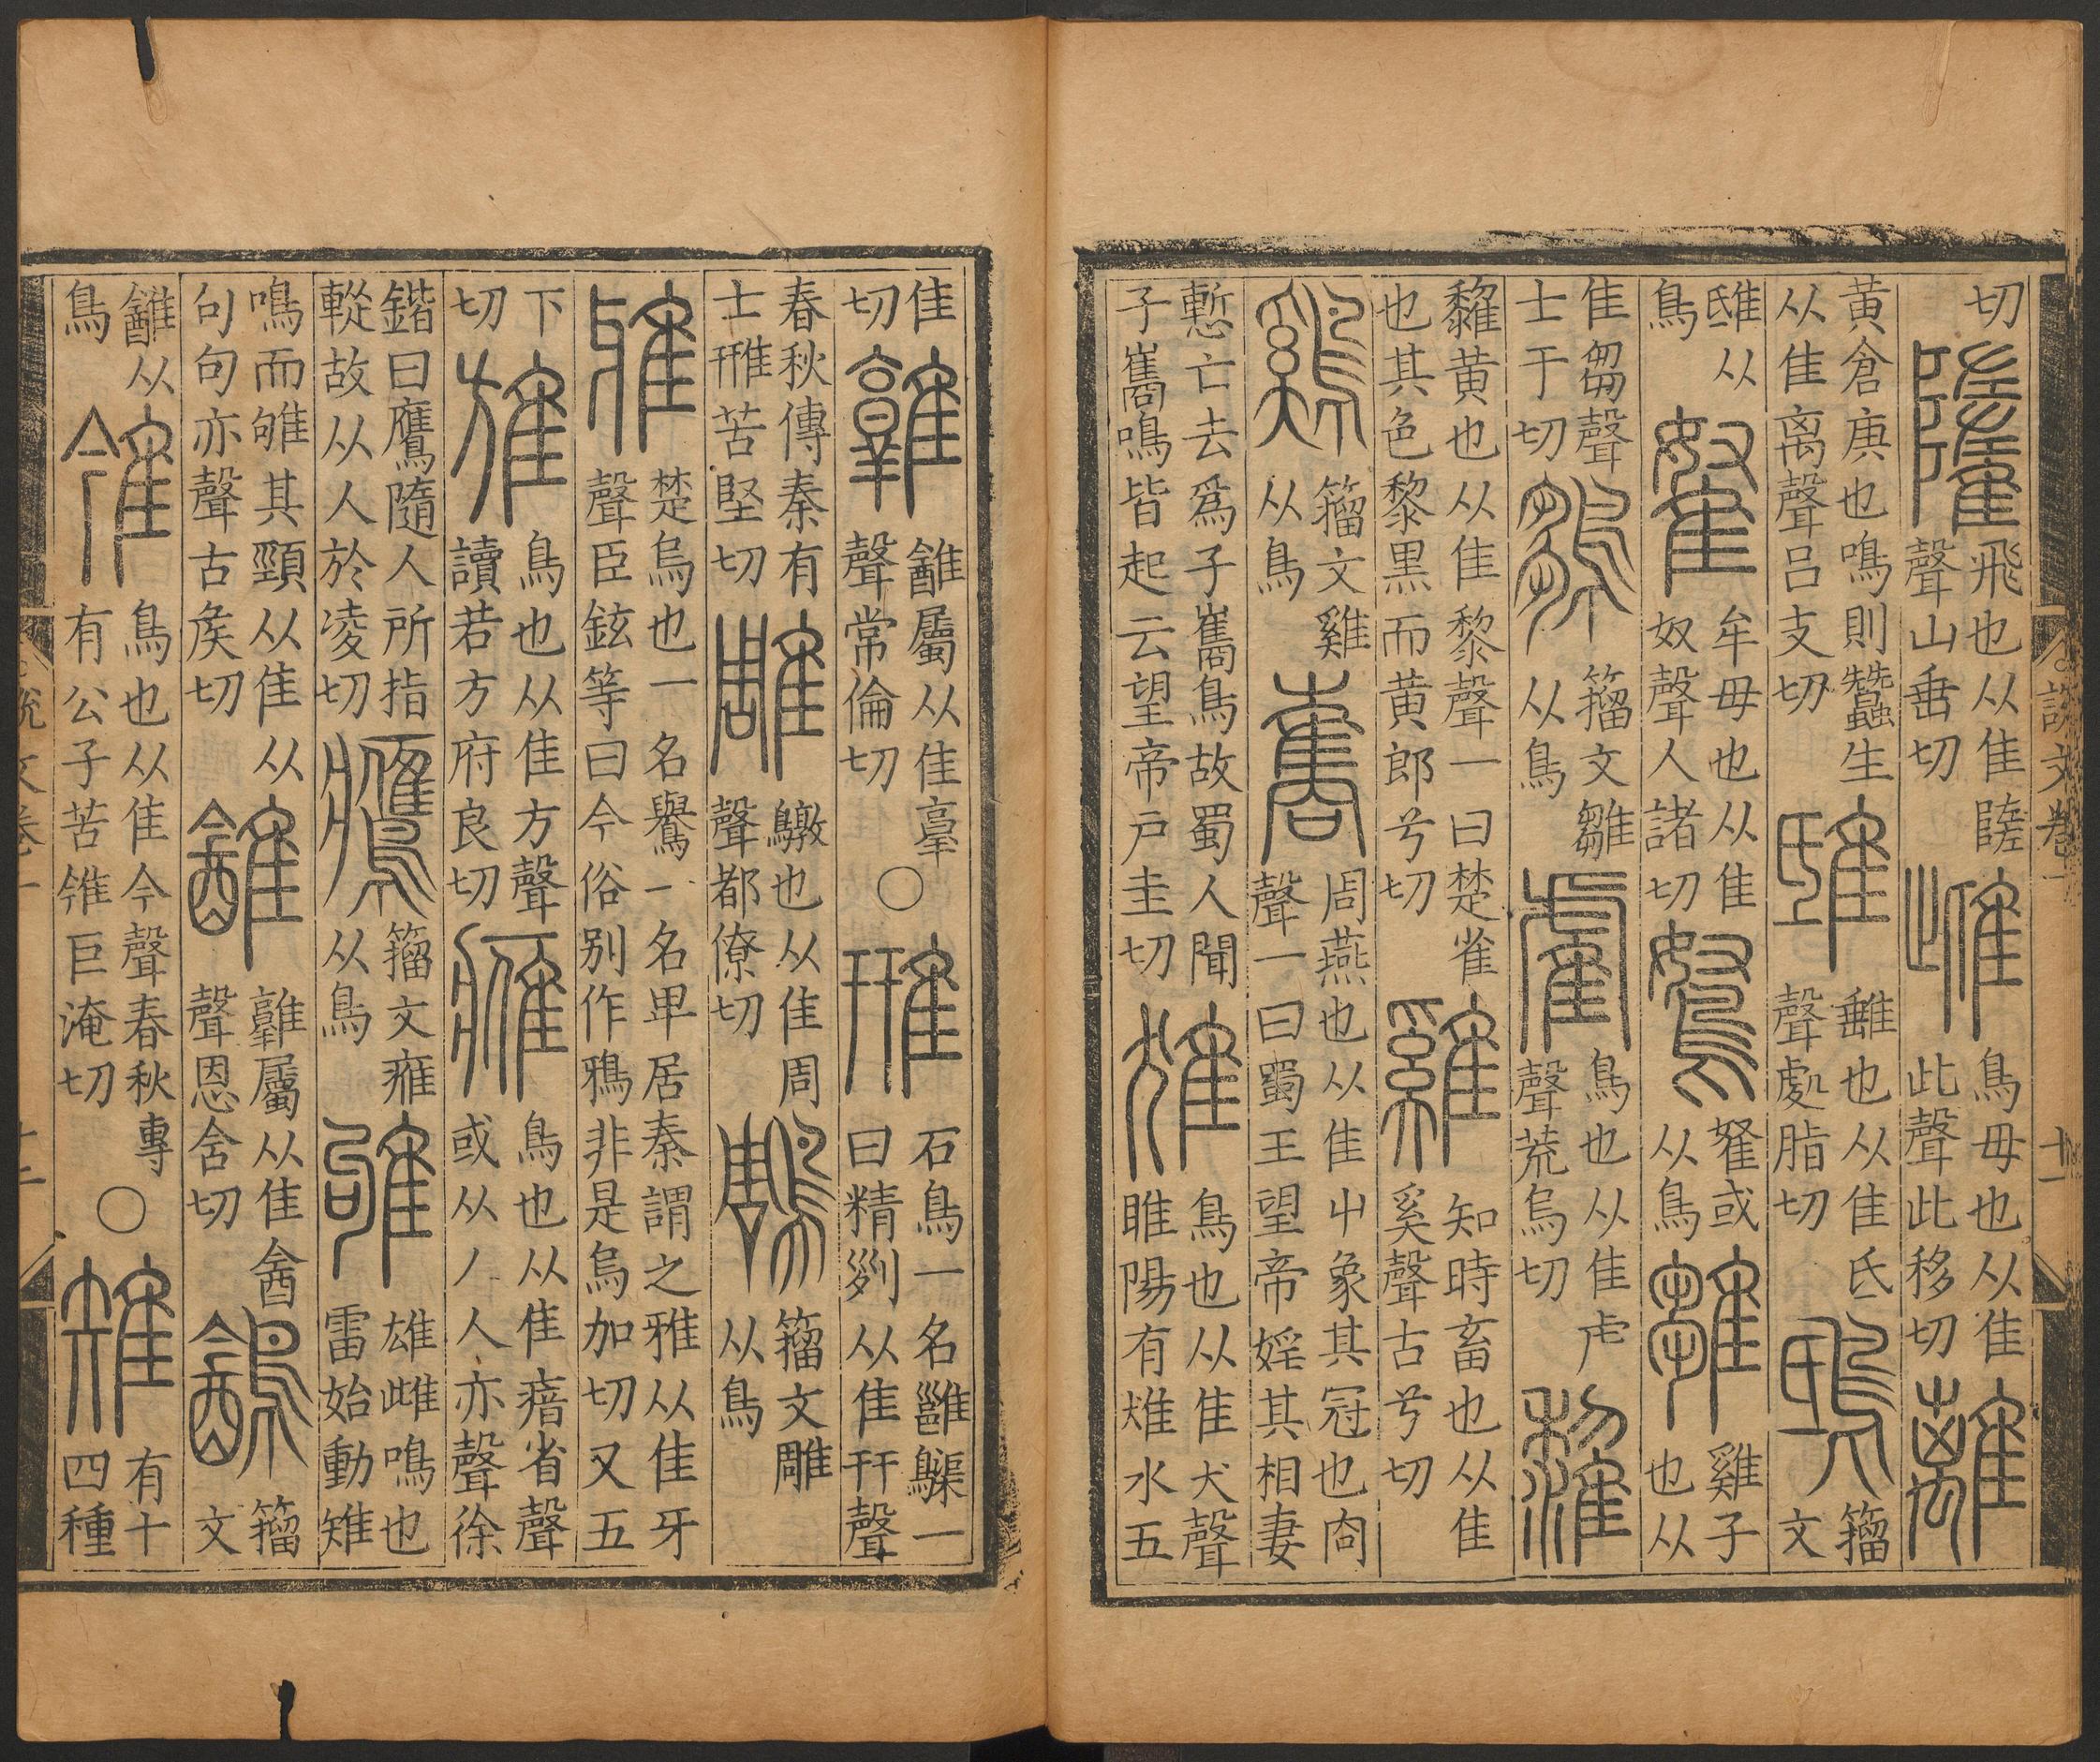 切　飛也从隹　聲山垂切雌鳥母也从隹此聲此移切離
黄倉庚也鳴則蠶生从隹离聲呂支切䧴也从隹氐聲處脂切鴟籀文
䧴从鳥牟毋也从隹奴聲人諸切鴽或从鳥雛雞子也从
隹芻聲士于切鶵籀文雛从鳥雐鳥也从隹虍聲荒烏切
黄也从隹黎聲一曰楚雀也其色黎黑而黄郎兮切雞知時畜也从隹奚聲古兮切
鷄籀文雞从鳥巂周燕也从隹屮象其冠也㕯聲一曰蜀王望帝婬其相妻
慙亡去爲子巂鳥故蜀人聞子巂鳴皆起云望帝戶圭切鳥也从隹犬聲睢陽有水五
說文卷　十一
隹切　屬从隹　聲常倫切〇雃石鳥一名雝一曰精列从隹幵聲
春秋傳秦有士雃苦堅切雕也从隹周聲都僚切鵰籀文雕从鳥
雅楚烏也一名鸒一名卑居秦謂之雅从隹牙聲臣鉉等曰今俗别作鴉非是烏加切又五
下切鳥也从隹方聲讀若方府良切䧹鳥也从隹瘖省聲或从人人亦聲徐
鍇曰鷹隨人所指故从人於凌切鷹籀文从鳥雊雄雌鳴也雷始動雉
鳴而雊其頸从隹从句句亦聲古矦切　屬从隹酓聲恩含切籀文
从鳥雂鳥也从隹今聲春秋專有公子苦雂巨淹切〇雉有十四種
說文卷　十二